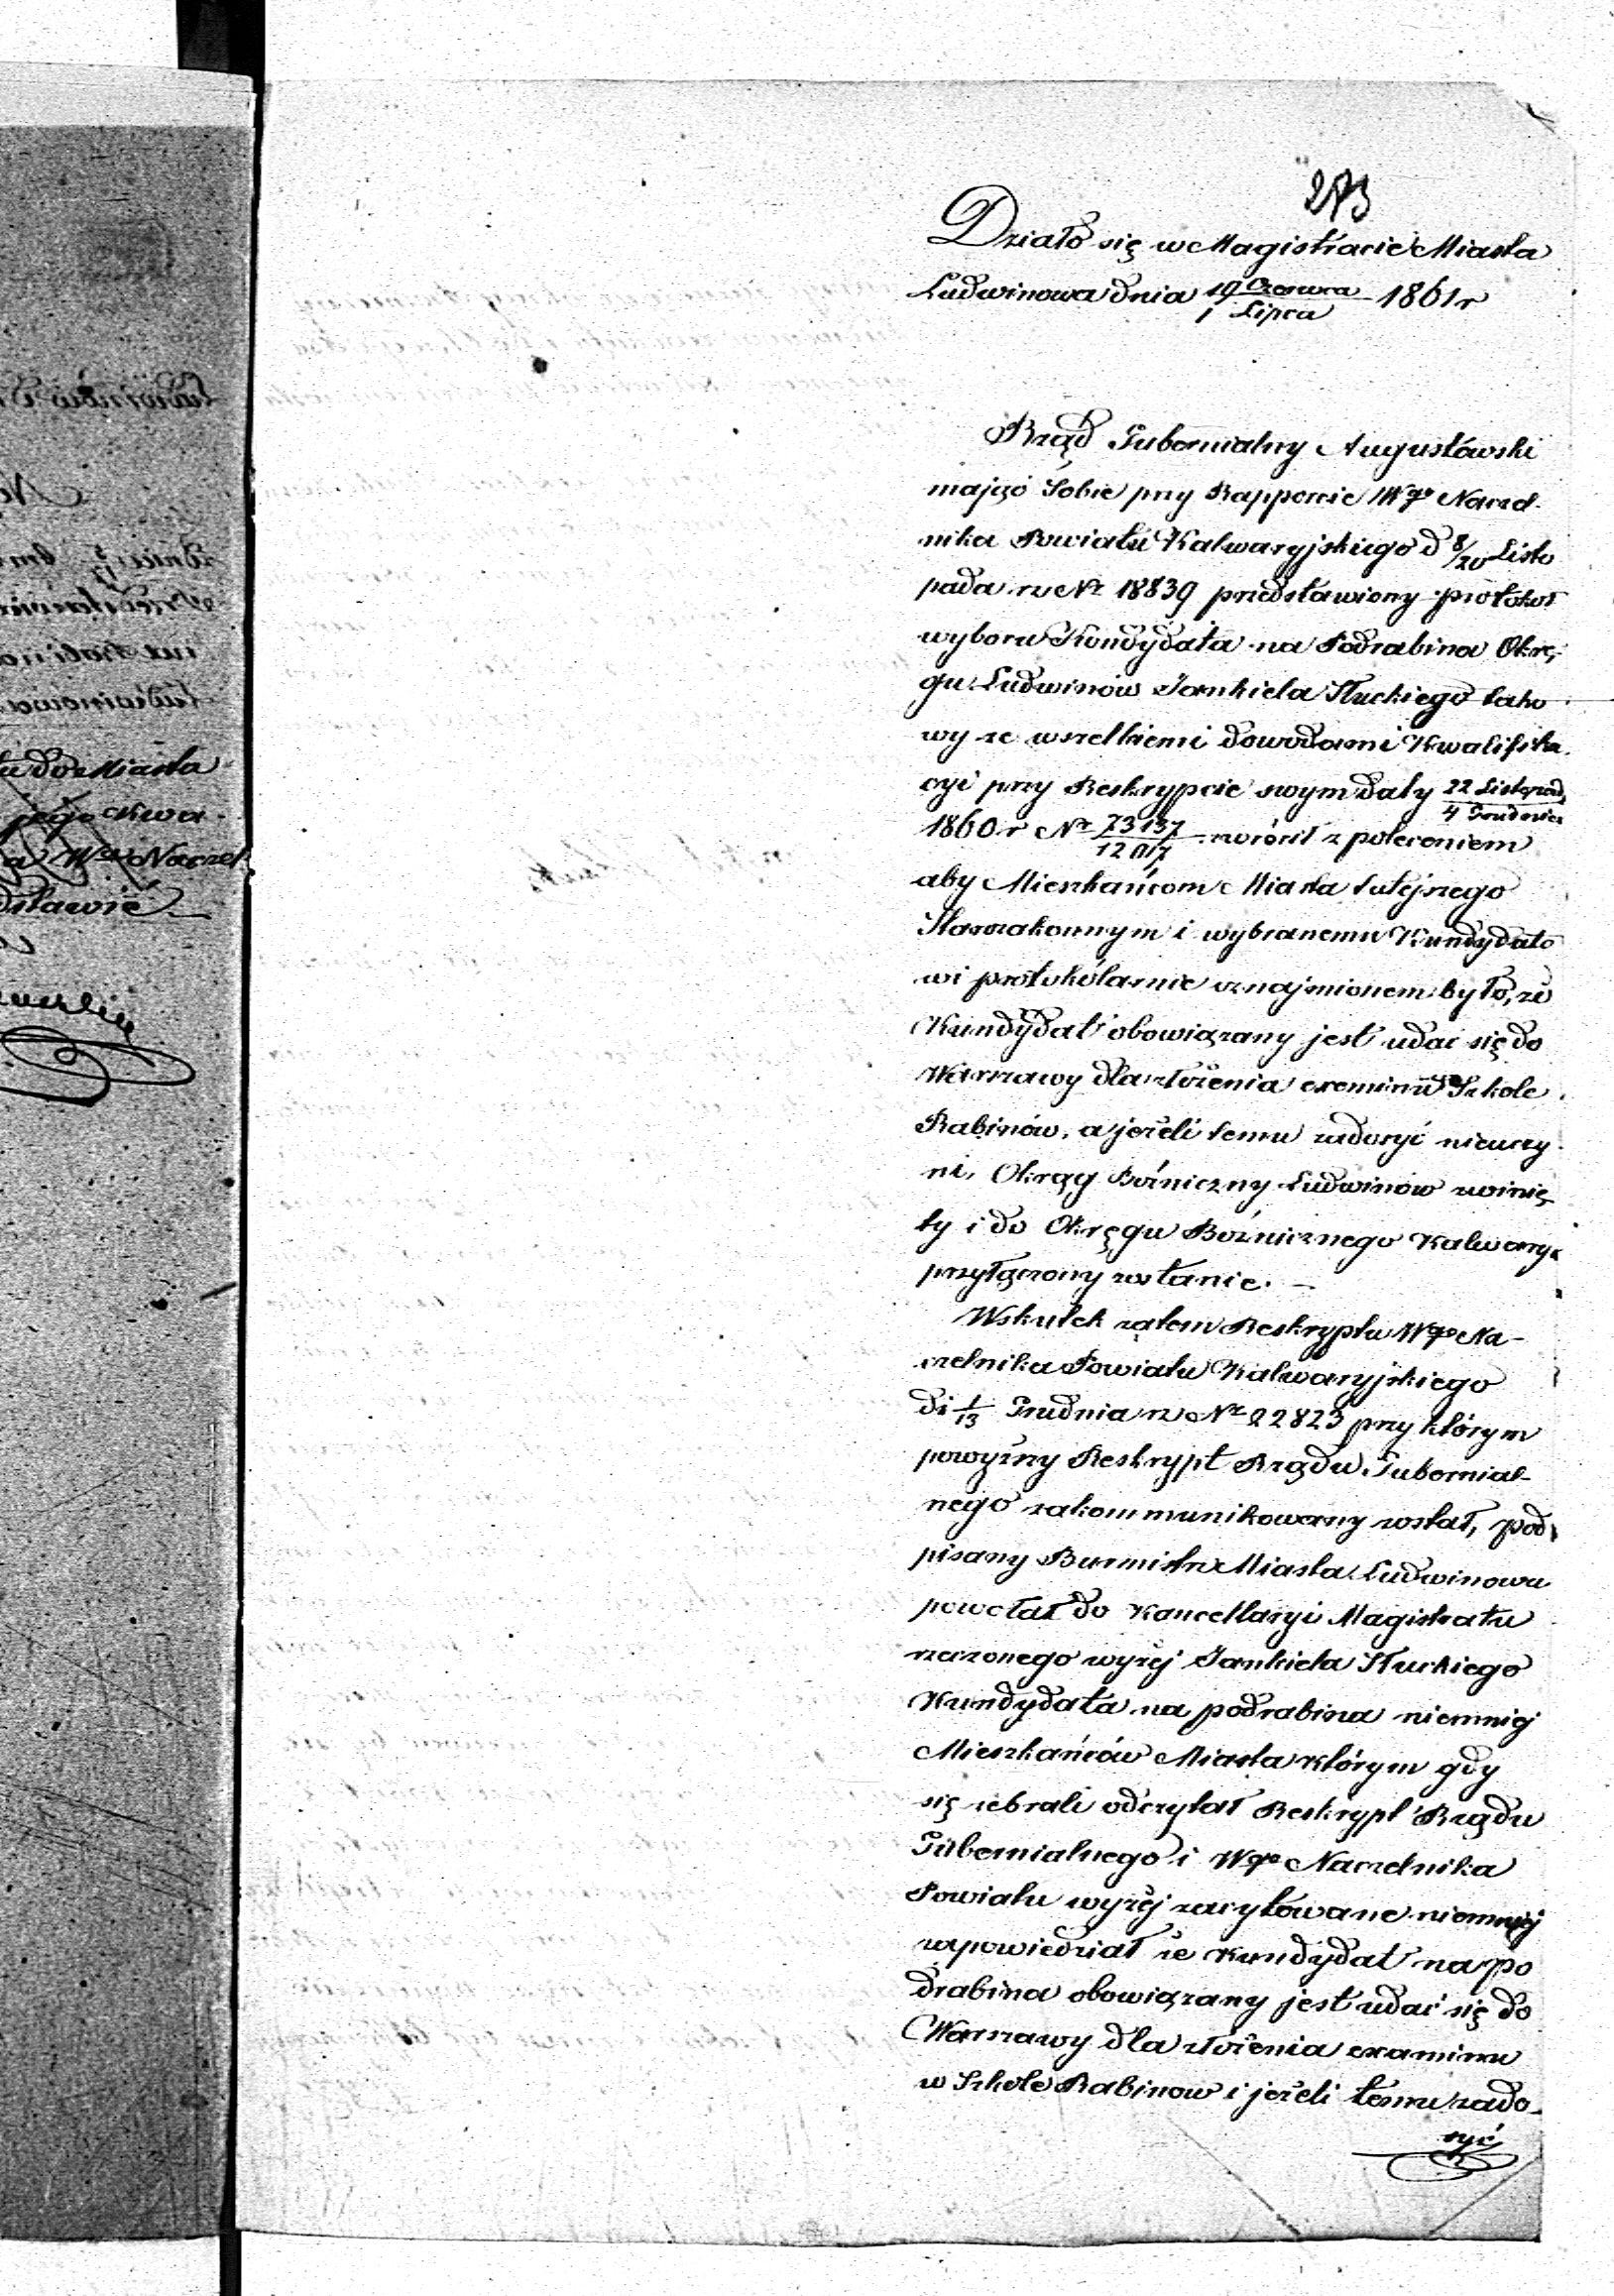 273
Działo się w Magistracie Miasta
Ludwinowa dnia 19 Czerwca / 1 Lipca 1861 r
Rząd Gubernialny Augustowski
mając Sobie przy Rapporcie Wgo Naczel-
nika Powiatu Kalwaryjskiego d 8/20 Listo
pada rz Nr 18839 przedstawiony protokoł
wyboru Kandydata na Podrabina Okrę-
gu Ludwinow Jankiela Słuckiego tako
wy ze wszelkiemi dowodami Kwalifika
cyi przy Reskrypcie swym daty 22 Listopada / 4 Grudnia
1860 r Nr 73137 / zwrócił z poleceniem
aby Mieszkańcom Miasta tutejszego
Starozakonnym i wybranemu Kandydato
wi protokólarnie oznajmionem było, że
Kandydat obowiązany jest udać się do
Warszawy dla złożenia examinu w Szkole
Rabinów, a jeżeli temu zadosyć nieuczy
ni, Okrąg Bóżniczny Ludwinow zwinię
ty i do Okręgu Bóżnicznego Kalwarya
przyłączony zostanie. –
Wskutek zatem Reskryptu Wgo Na-
czelnika Powiatu Kalwaryjskiego
di 1/13 Grudnia rz Nr 22823 przy którym
powyższy Reskrypt Rządu Gubernial-
nego zakommunikowany został, pod
pisany Burmistrz Miasta Ludwinowa
powołał do Kancellaryi Magistratu
rzeczonego wyżej Jankiela Słuckiego
Kandydata na podrabina niemniej
Mieszkańców Miasta którym gdy
się zebrali odczytał Reskrypt Rządu
Gubernialnego i Wgo Naczelnika
Powiatu wyżej zacytowane niemniej
zapowiedział że Kandydat na po
drabina obowiązany jest udać się do
Warszawy dla złożenia examinu
w Szkole Rabinow i jeżeli temu zado-
syć
tu do Miasta
jego Kwa
a Wo Naczel
dstawić